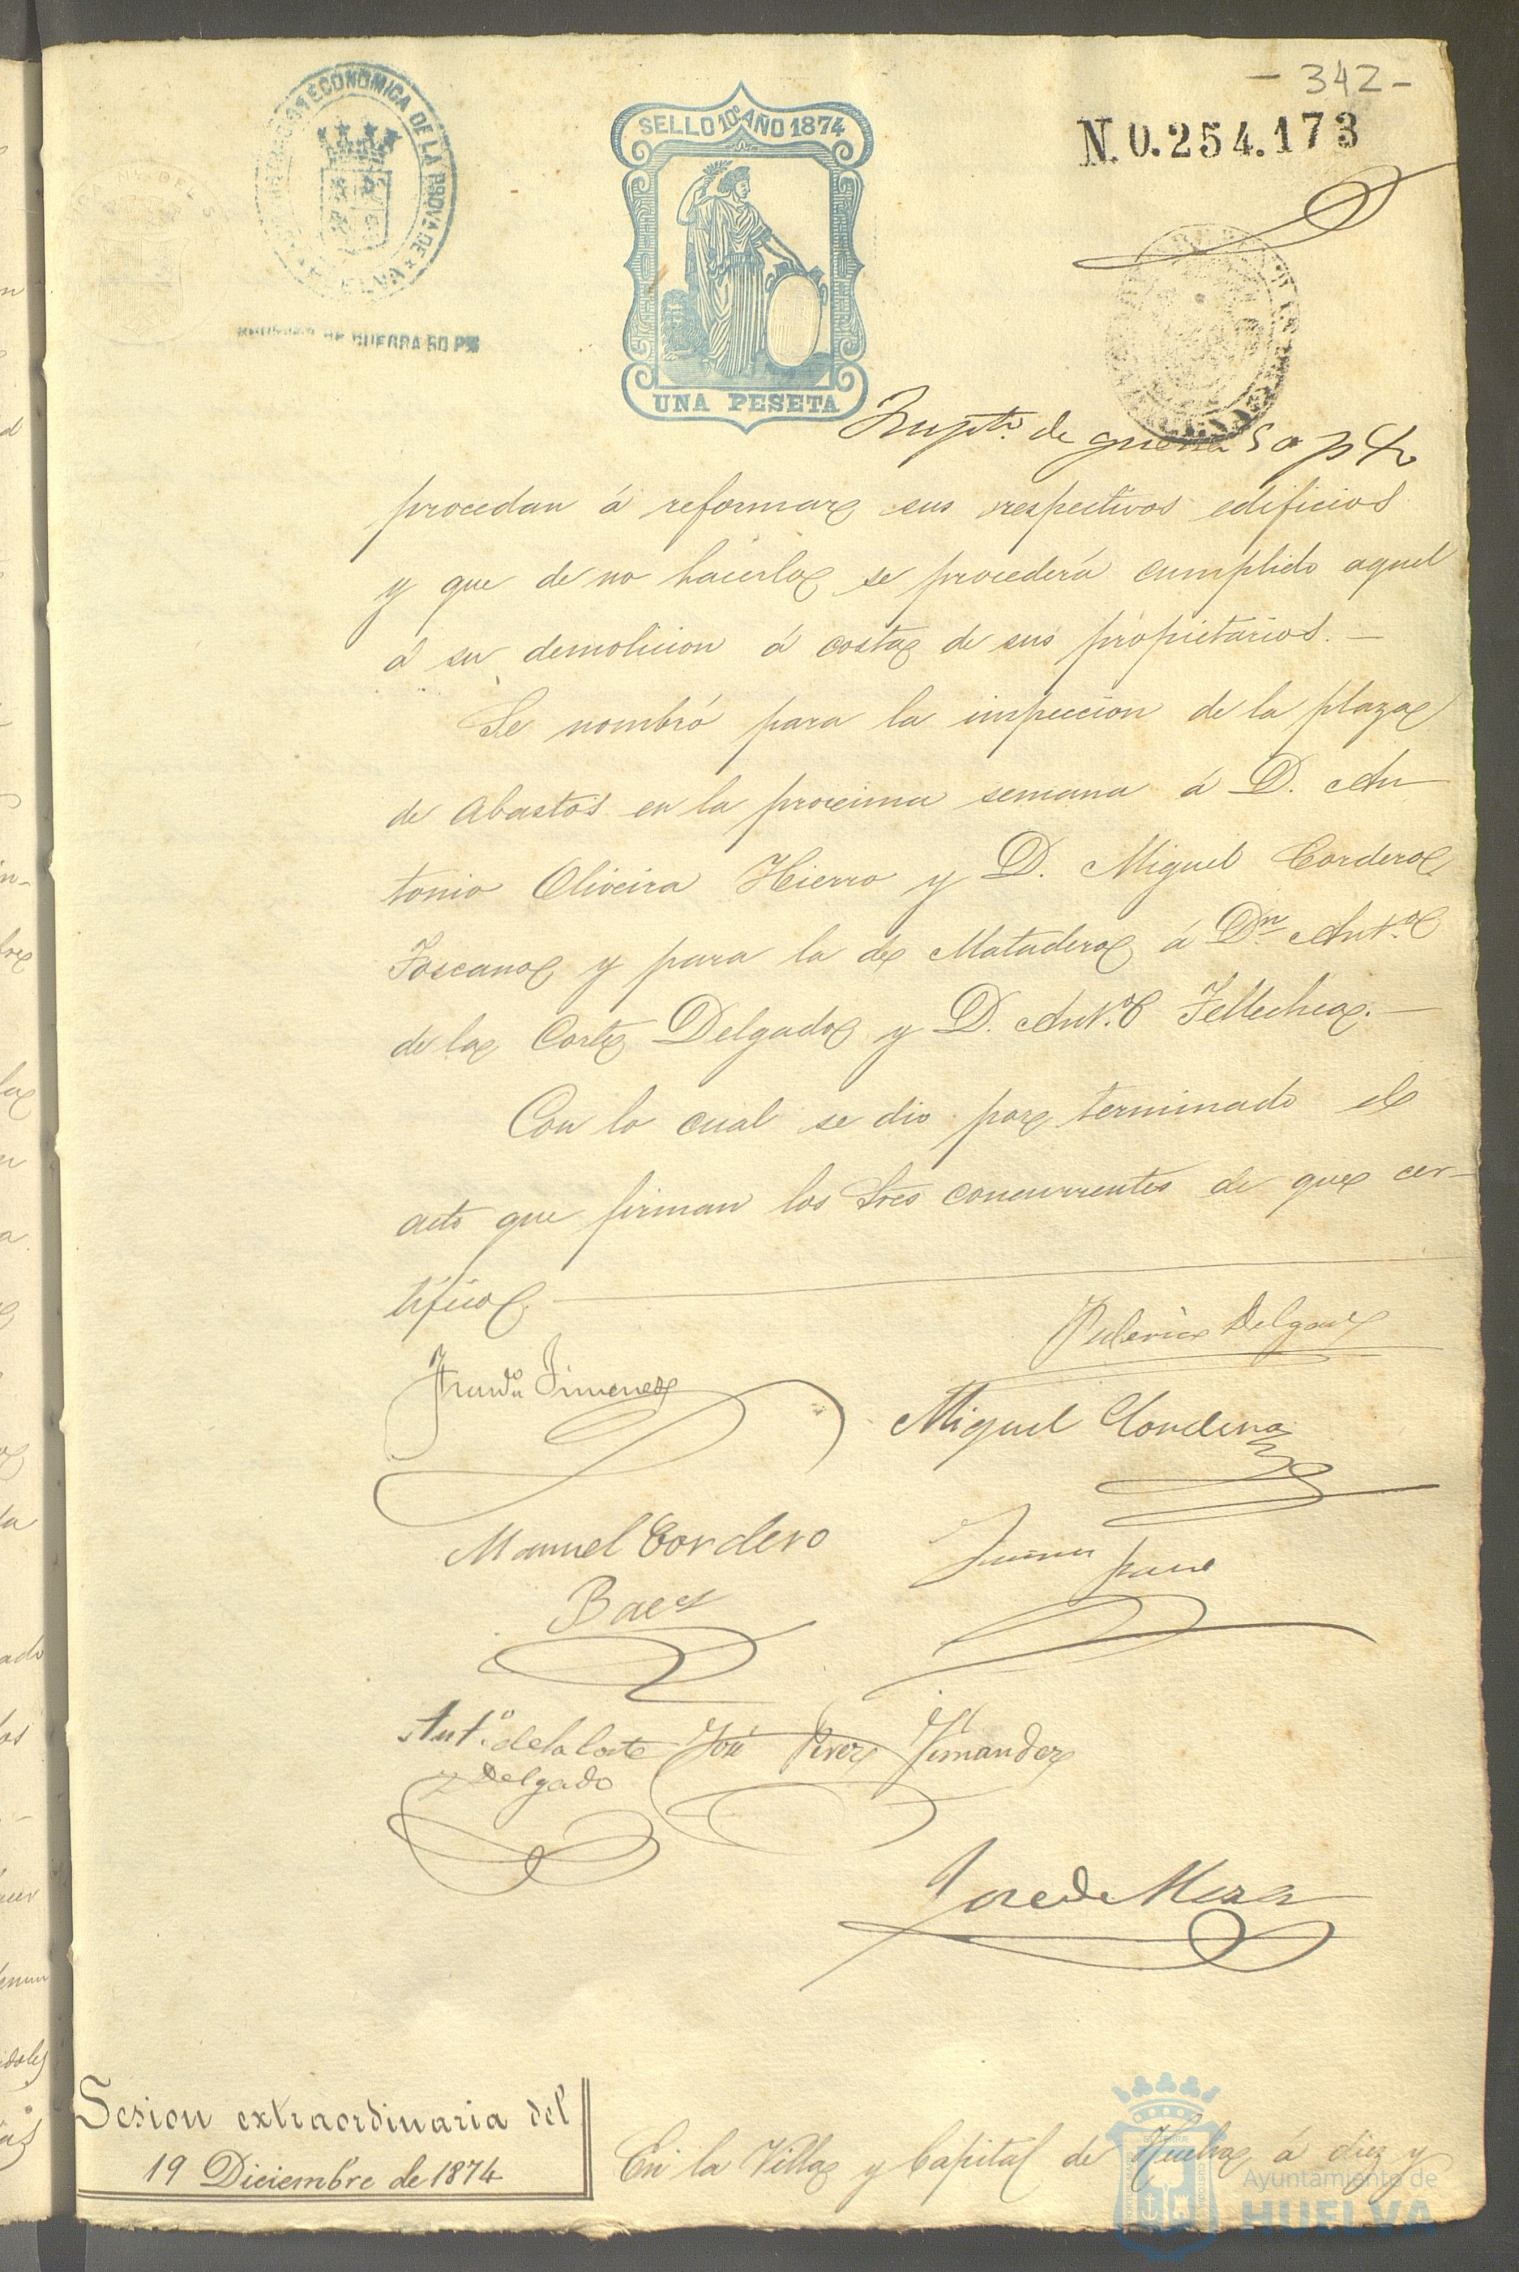 - 342 -
N. 0.254.173
ECONOMICA DE LA PROVA DE
SELLO 10º AÑO 1874
UNA PESETA
DE GUERRA 50 P
Imptº. de guerra 50 p
procedan á reformar sus respectivos edificios
y que de no hacerlo se procederá cumplido aquel
á su demolicion á costa de sus propietarios. —
Se nombró para la inspeccion de la plaza
de Abastos en la procsima semana á D. An
tonio Oliveira Hierro y D. Miguel Cordero
Toscano y para la de Matadero á Dn. Antº
de la Corte Delgado y D. Antº Tellechea. —
Con lo cual se dio por terminado el
acto que firman los Sres concurrentes de que cer-
tifico.
Federico Delgado
Franco Jimenez
Miguel Cordero
Manuel Cordero
Baez
Antº de la Corte
y Delgado
José Perez Fernandez
Jose de Mesa
Sesion extraordinaria del
19 Diciembre de 1874
En la Villa y Capital de Huelva á diez y
Ayuntamiento de
HUELVA